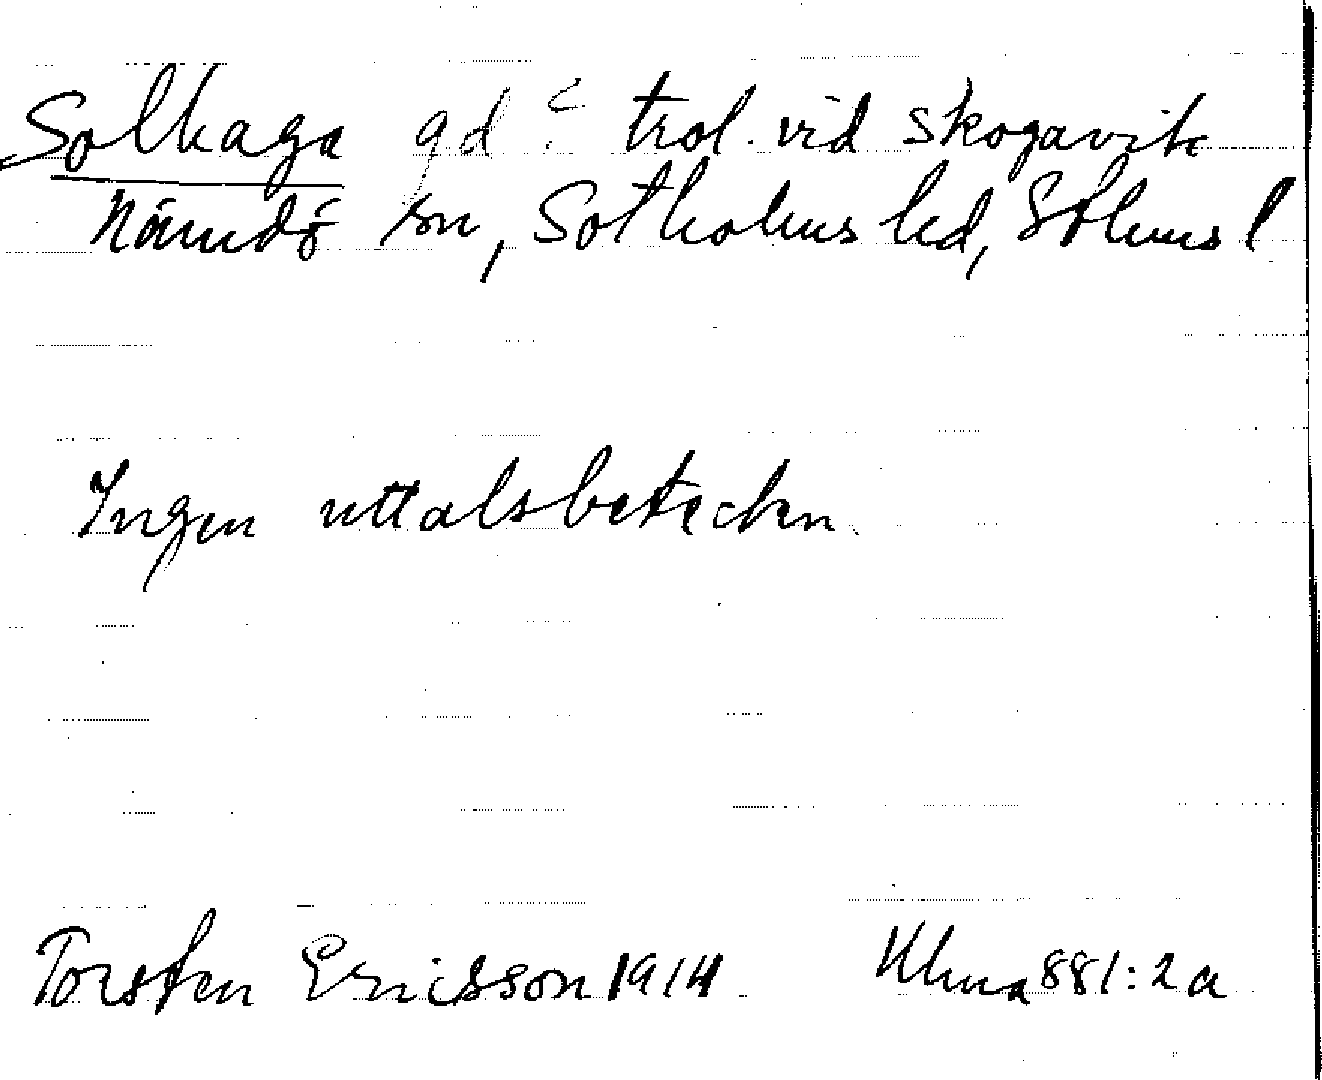 Solhaga gd? trol. vid Skogavik
Nämdö sn, Sotholms hd, Sthlms l
Ingen uttalsbeteckn.
Torsten Ericsson 1914 Ulma 881:2a